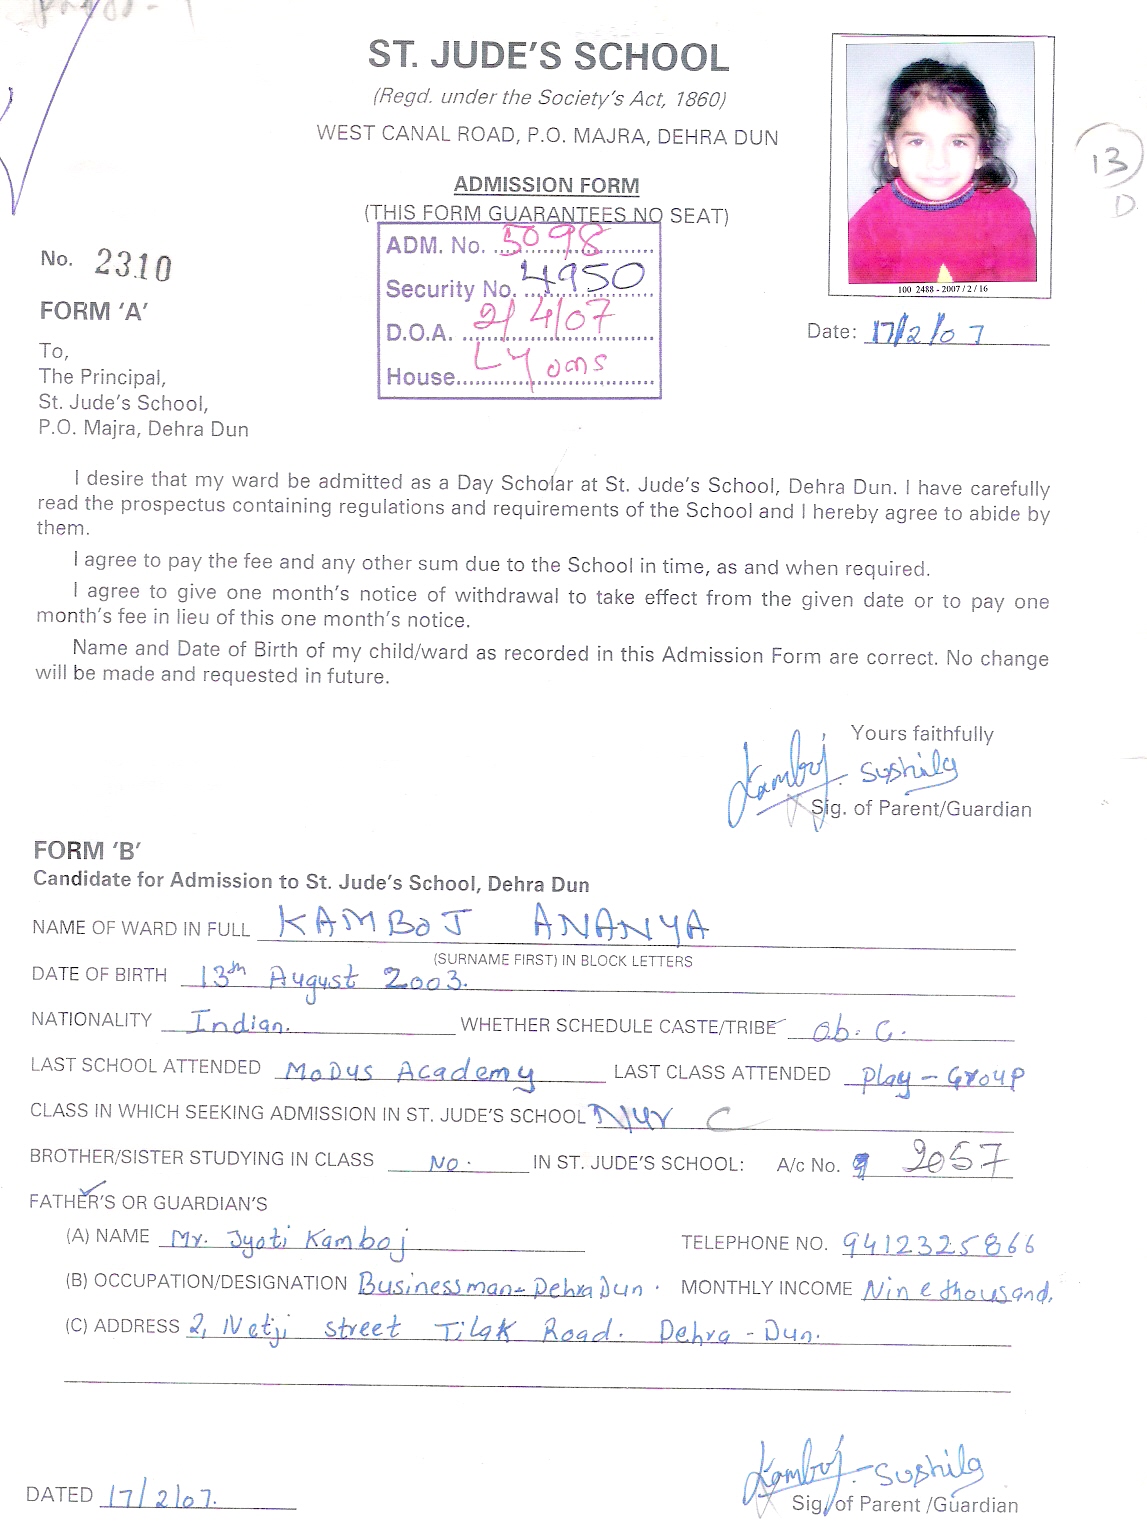 ST. JUDE'S SCHOOL
(Regd. under the Society's Act, 1860)
WEST CANAL ROAD, P.O. MAJRA, DEHRA DUN
ADMISSION FORM
(THIS FORM GUARANTEES NO SEAT)
13
D
100 2488 - 2007 / 2 / 16
No. 2310
ADM. No. 5098
Security No. 4950
D.O.A. 2/4/07
House Lyons
FORM 'A'
Date: 17/2/07
To,
The Principal,
St. Jude's School,
P.O. Majra, Dehra Dun
I desire that my ward be admitted as a Day Scholar at St. Jude's School, Dehra Dun. I have carefully
read the prospectus containing regulations and requirements of the School and I hereby agree to abide by
them.
I agree to pay the fee and any other sum due to the School in time, as and when required.
I agree to give one month's notice of withdrawal to take effect from the given date or to pay one
month's fee in lieu of this one month's notice.
Name and Date of Birth of my child/ward as recorded in this Admission Form are correct. No change
will be made and requested in future.
Yours faithfully
Kamboj. Sushila
Sig. of Parent/Guardian
FORM 'B'
Candidate for Admission to St. Jude's School, Dehra Dun
NAME OF WARD IN FULL KAMBOJ ANANYA
(SURNAME FIRST) IN BLOCK LETTERS
DATE OF BIRTH 13th August 2003.
NATIONALITY Indian. WHETHER SCHEDULE CASTE/TRIBE O.b.C.
LAST SCHOOL ATTENDED Modus Academy LAST CLASS ATTENDED Play - Group
CLASS IN WHICH SEEKING ADMISSION IN ST. JUDE'S SCHOOL Nur C
BROTHER/SISTER STUDYING IN CLASS No. IN ST. JUDE'S SCHOOL: A/c No. 2057
FATHER'S OR GUARDIAN'S
(A) NAME Mr. Jyoti Kamboj TELEPHONE NO. 9412325866
(B) OCCUPATION/DESIGNATION Businessman - Dehra Dun. MONTHLY INCOME Nine thousand.
(C) ADDRESS 2, Netji street Tilak Road. Dehra - Dun.
Kamboj. Sushila
DATED 17/2/07.
Sig. of Parent /Guardian